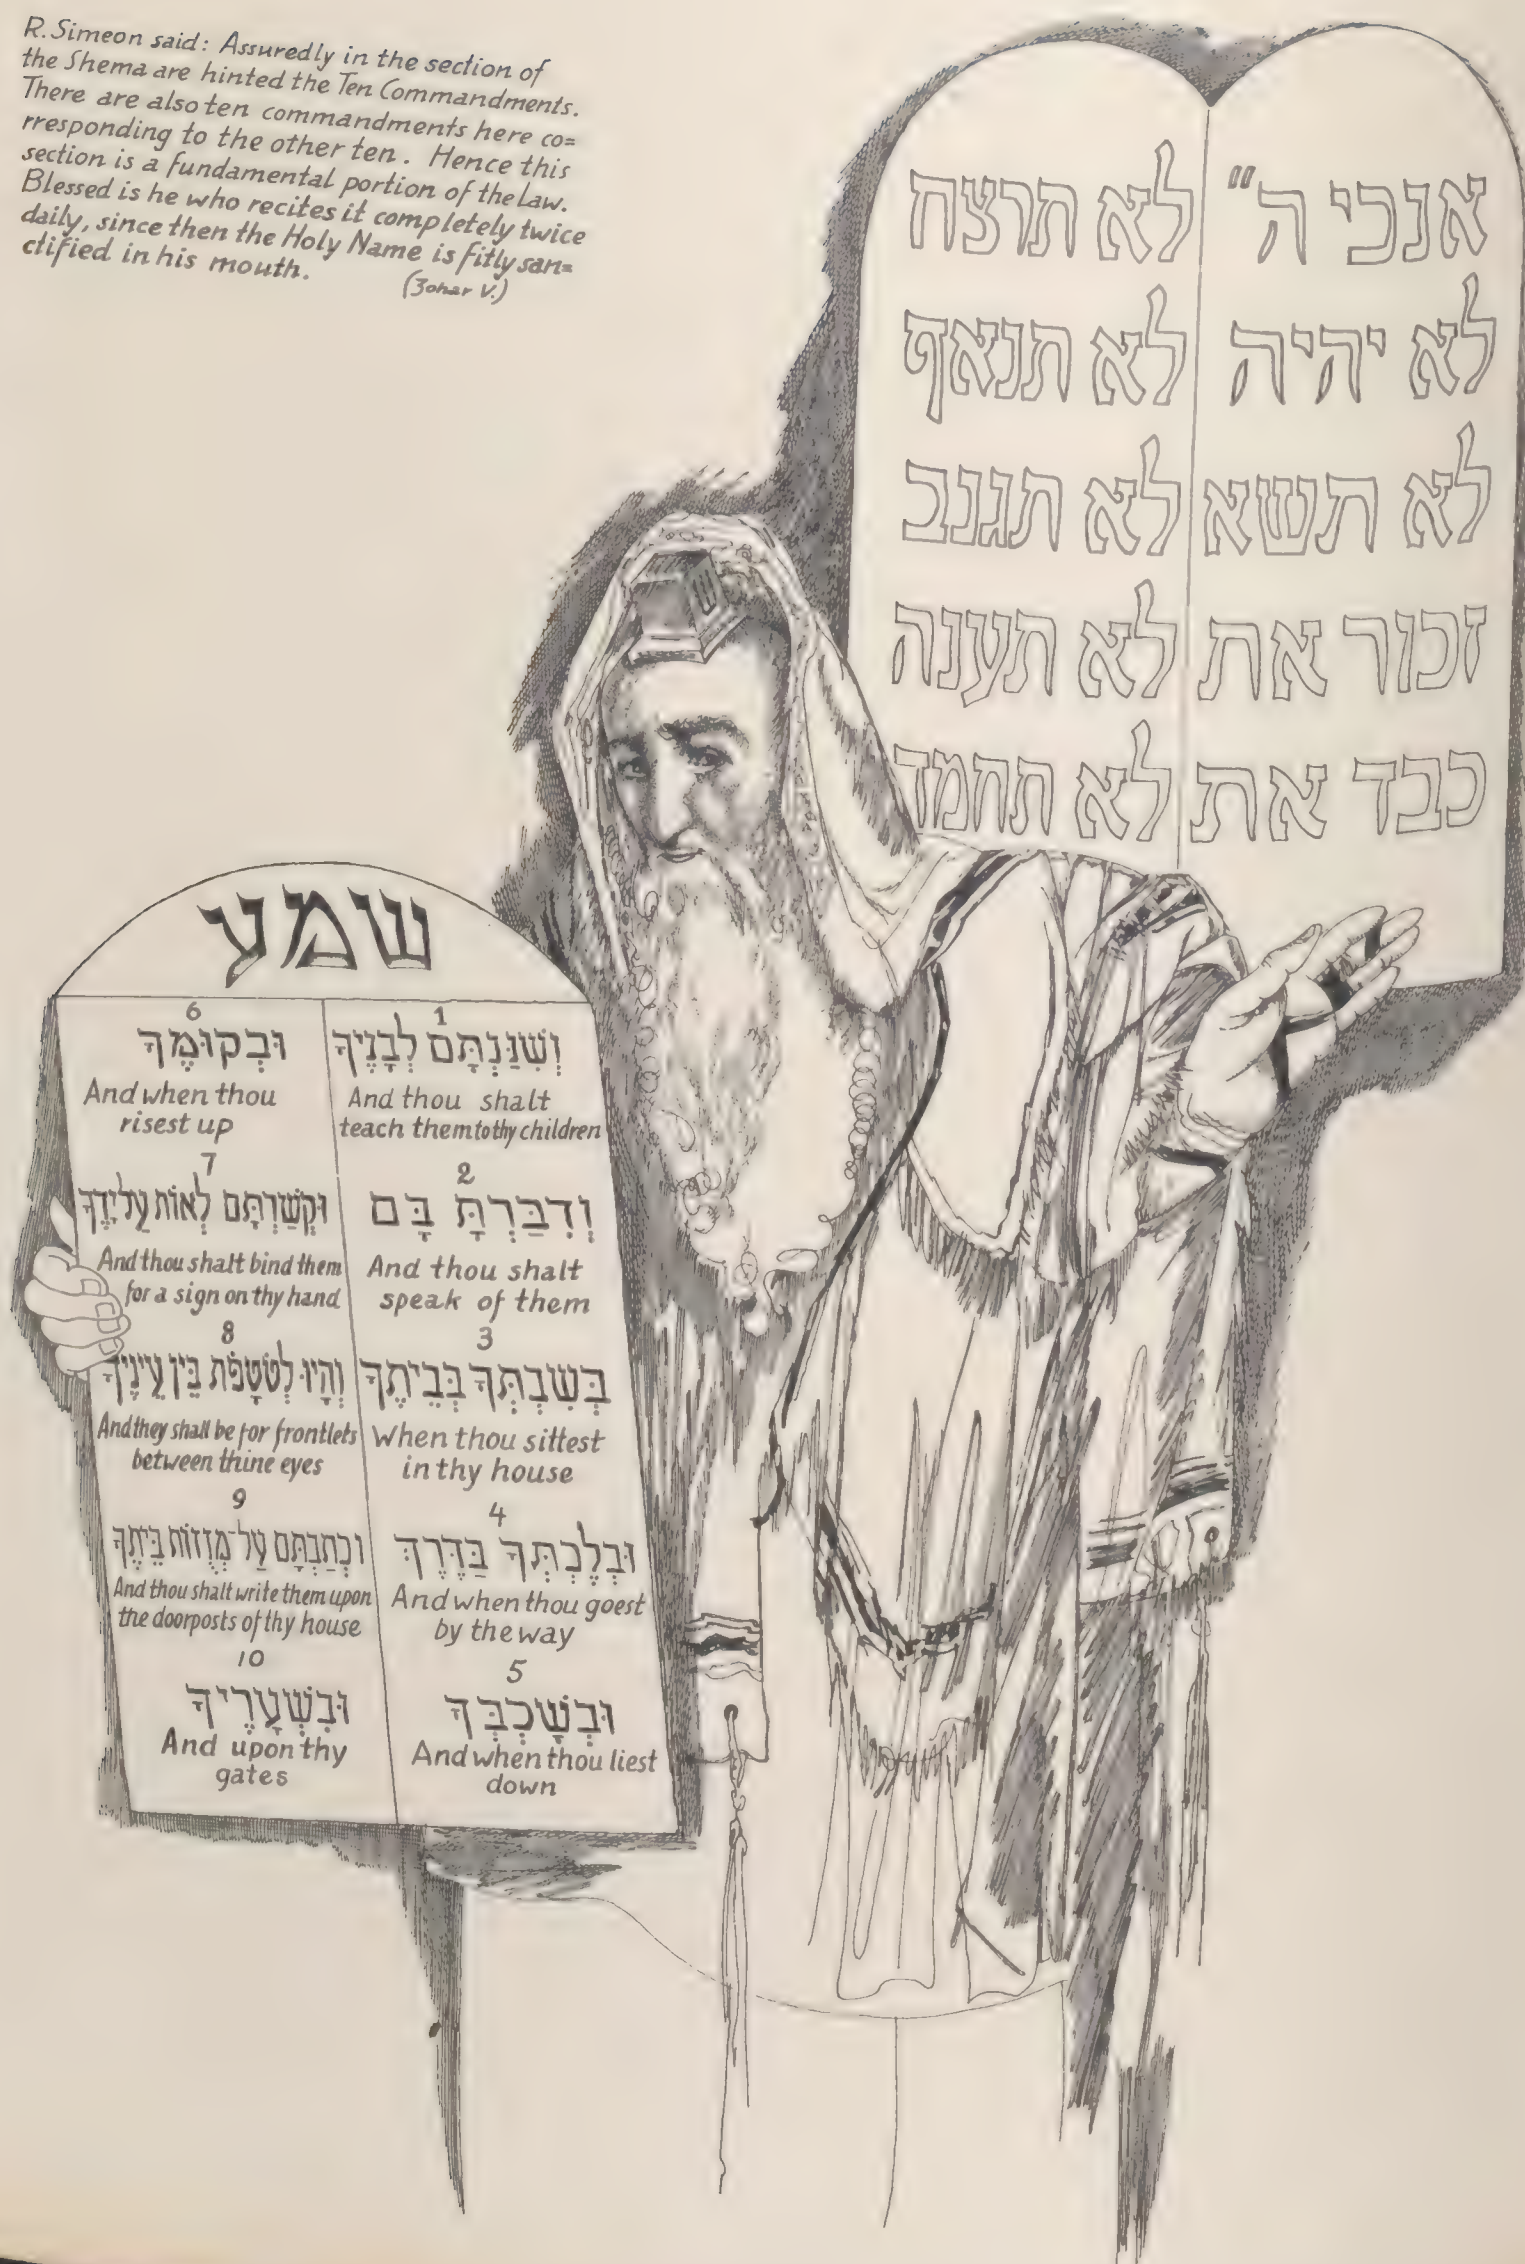 R. Simeon said: Assuredly in the section of
the Shema are hinted the Ten Commandments.
There are also ten commandments here co=
rresponding to the other ten. Hence this
section is a fundamental portion of the Law.
Blessed is he who recites it completely twice
daily, since then the Holy Name is fitly san=
ctified in his mouth.
(Zohar V.)
אנכי ה"
לא יהיה
לא תשא
זכור את
כבד את
לא תרצח
לא תנאף
לא תגנב
לא תענה
לא תחמד
שמע
1
וְשִׁנַּנְתָּם לְבָנֶיךָ
And thou shalt
teach them to thy children
2
וְדִבַּרְתָּ בָּם
And thou shalt
speak of them
3
בְּשִׁבְתְּךָ בְּבֵיתֶךָ
When thou sittest
in thy house
4
וּבְלֶכְתְּךָ בַדֶּרֶךְ
And when thou goest
by the way
5
וּבְשָׁכְבְּךָ
And when thou liest
down
6
וּבְקוּמֶךָ
And when thou
risest up
7
וּקְשַׁרְתָּם לְאוֹת עַל יָדֶךָ
And thou shalt bind them
for a sign on thy hand
8
וְהָיוּ לְטֹטָפֹת בֵּין עֵינֶיךָ
And they shall be for frontlets
between thine eyes
9
וּכְתַבְתָּם עַל־מְזֻזוֹת בֵּיתֶךָ
And thou shalt write them upon
the doorposts of thy house
10
וּבִשְׁעָרֶיךָ
And upon thy
gates